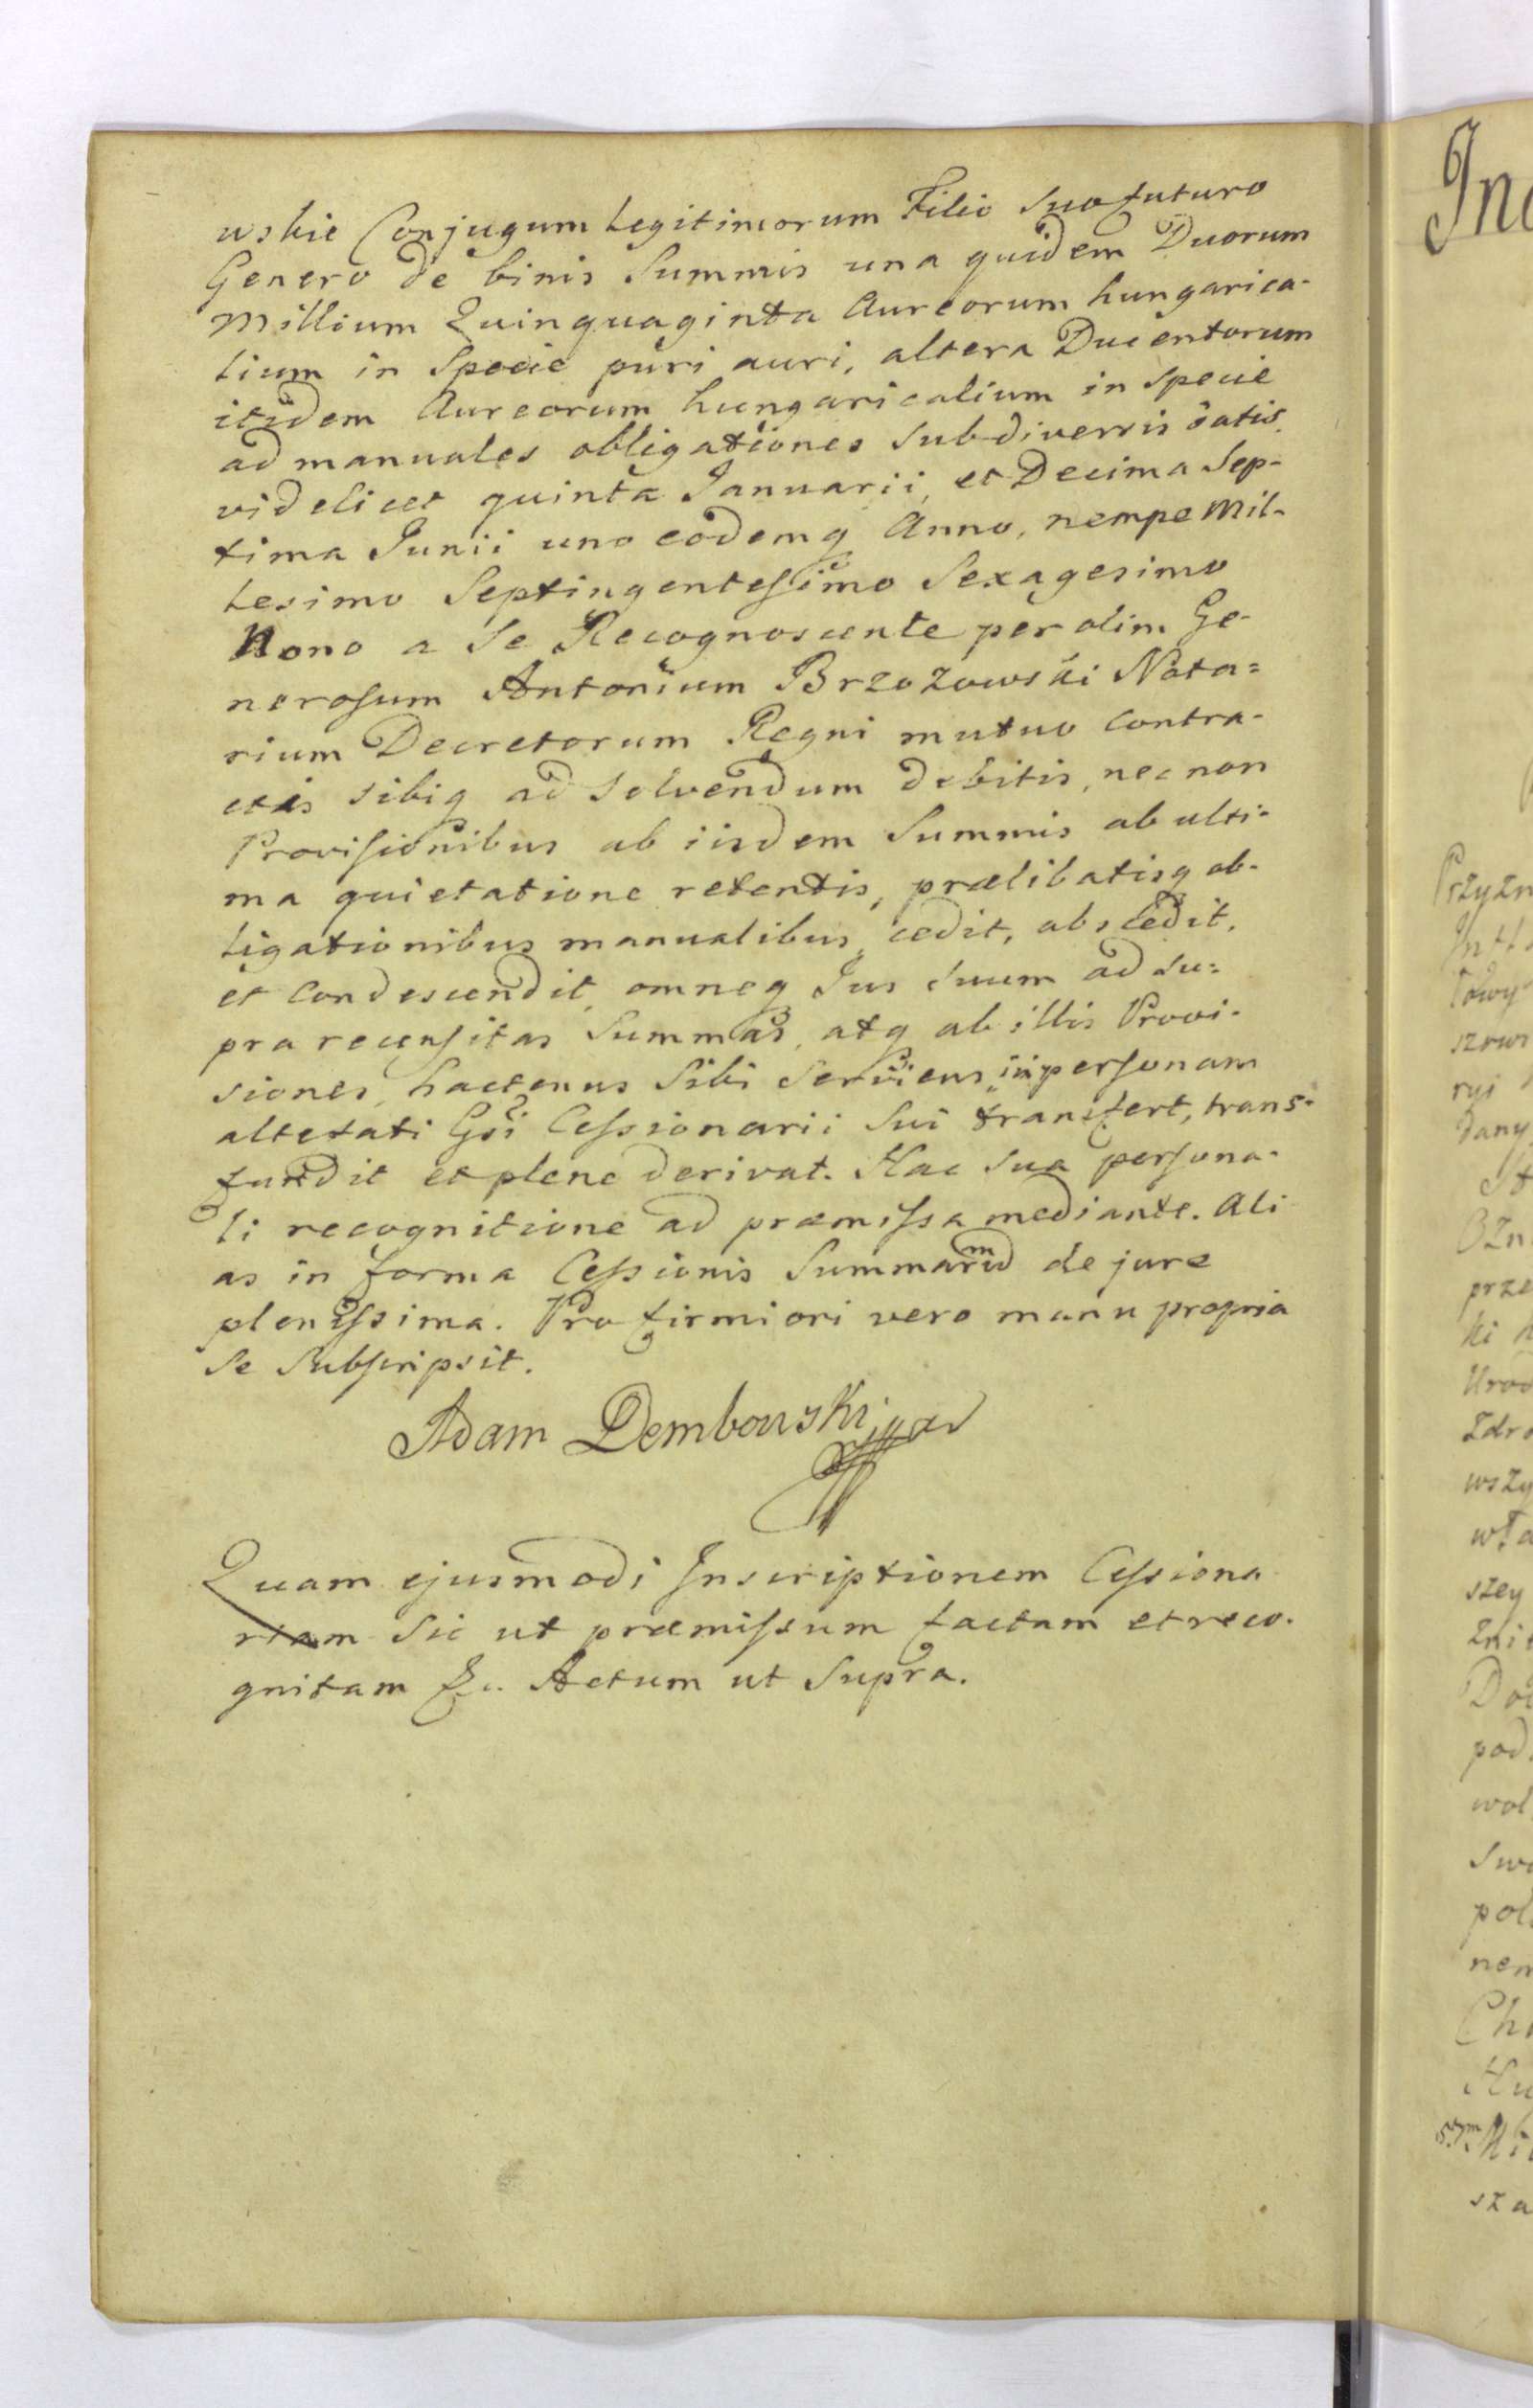 wskie Conjugum Legitimorum Filio Suo futuro
Genero de binis Summis una quidem Duorum
Millium Quinquaginta Aureorum hungarica-
lium in Specie puri auri, altera Ducentorum
itidem Aureorum hungaricalium in Specie
ad manuales obligationes sub diversis datis
videlicet quinta Januarii, et Decima Sep-
tima Junii uno eodemq Anno, nempe Mil-
lesimo Septingentesimo Sexagesimo
Nono a Se Recognoscente per olim Ge-
nerosum Antonium Brzozowski Nota=
rium Decretorum Regni mutuo Contra-
ctis sibiq ad Solvendum debitis, nec non
Provisionibus ab iisdem Summis ab ulti-
ma quietatione retentis, prælibatisq ob-
ligationibus manualibus, cedit, abscedit,
et Condescendit, omneq Jus Suum ad Su=
pra recensitas Summas, atq ab illis Provi-
siones, hactenus Sibi Serviens, in personam
altefati Gsi Cessionarii Sui transfert, trans-
fundit et plene derivat. Hac Sua persona-
li recognitione ad præmissa mediante. Ali
as in forma Cessionis Summarũ de jure
plenissima. Pro firmiori vero manu propria
Se Subscripsit.
Adam Dembowski
Quam ejusmodi Inscriptionem Cessiona
riam Sic ut præmissum factam et reco-
gnitam &c. Actum ut Supra.
Przyzn
szow
dany
prze
ki
Uro
wszy
szey
pod
wol
Swo
pol
nem
sza